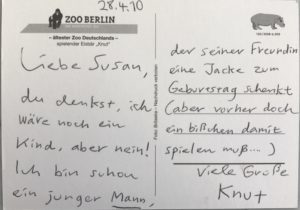 28.4.10
ZOO BERLIN
– ältester Zoo Deutschlands –
spielender Eisbär „Knut“
Liebe Susan,
du denkst, ich
wäre noch ein
Kind, aber nein!
Ich bin schon
ein junger Mann,
der seiner Freundin
eine Jacke zum
Geburtstag schenkt
(aber vorher doch
ein bißchen damit
spielen muß....)
Viele Grüße
Knut